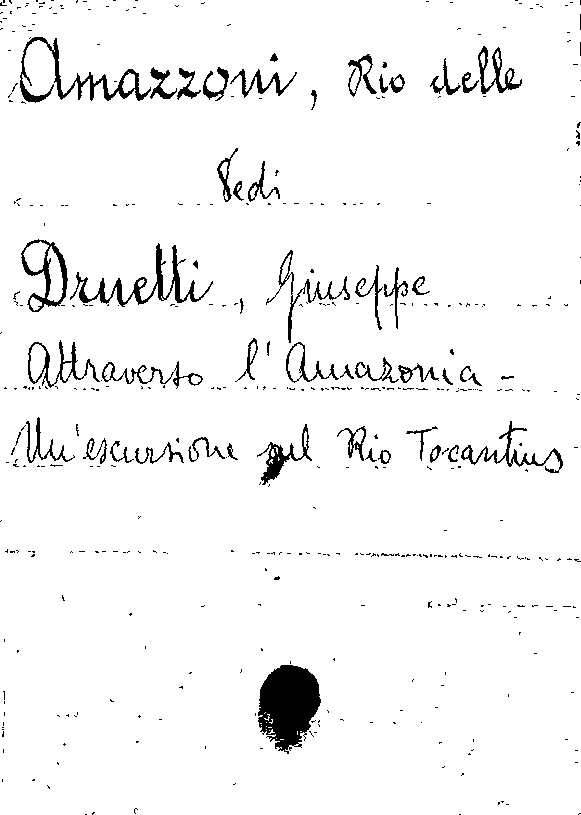 Amazzoni, Rio delle
Vedi
Druetti, Giuseppe
Attraverso l'Amazonia -
Un'escursione sul Rio Tocantins